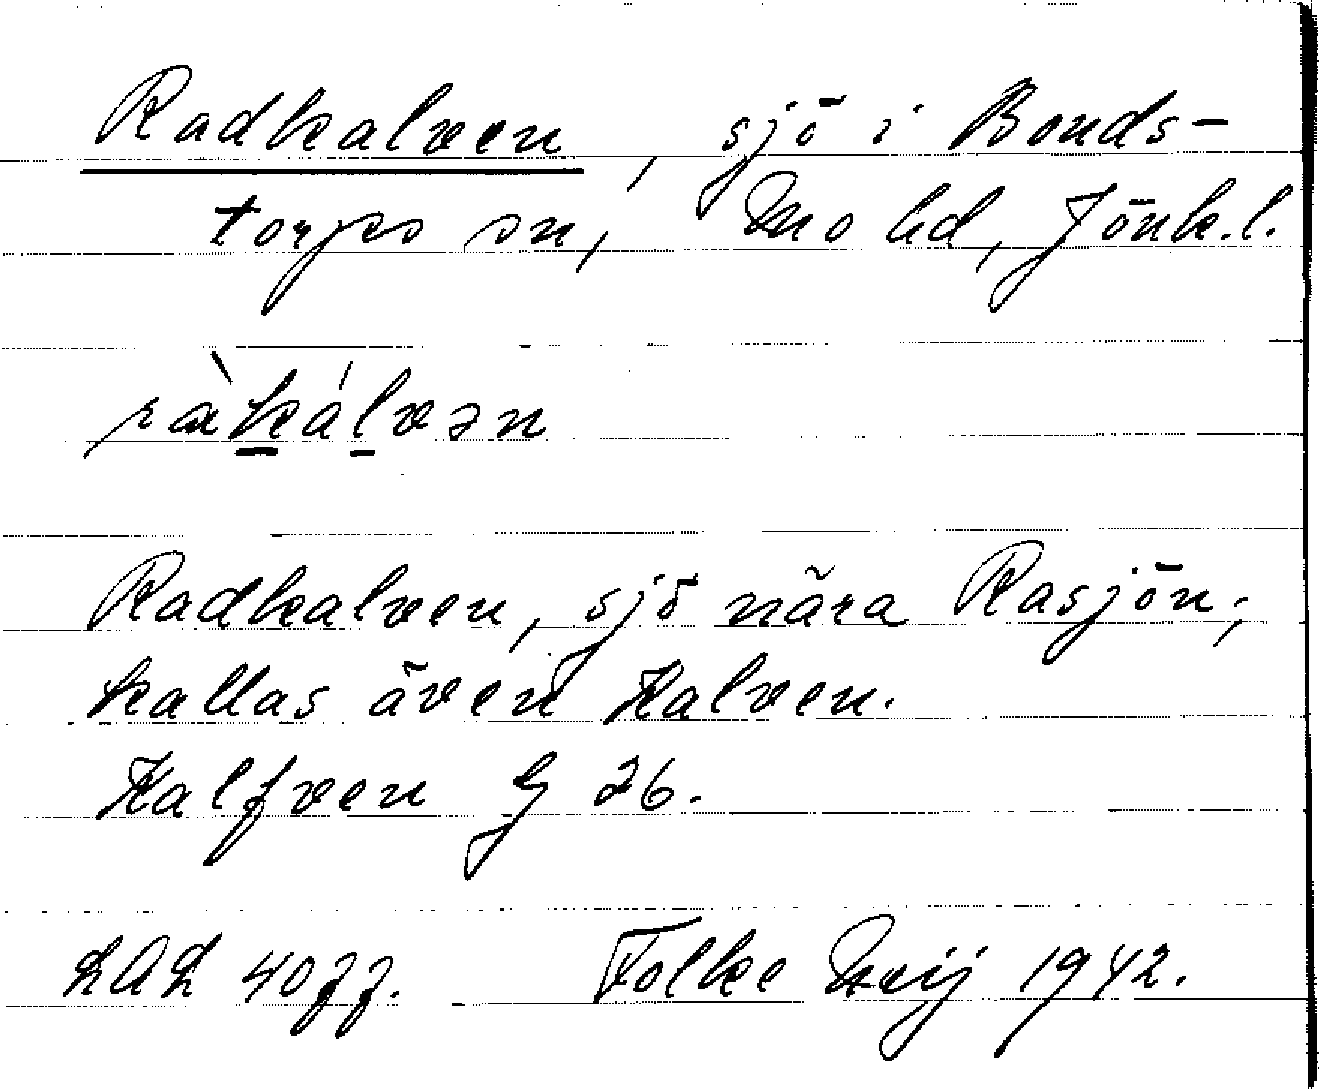 Radkalven, sjö i Bonds-
torps sn, Mo hd, Jönk.l.
ràkálvən
Radkalven, sjö nära Rasjön;
kallas även Kalven.
Kalfven G 26.
LAL 40ff. Folke 1942.